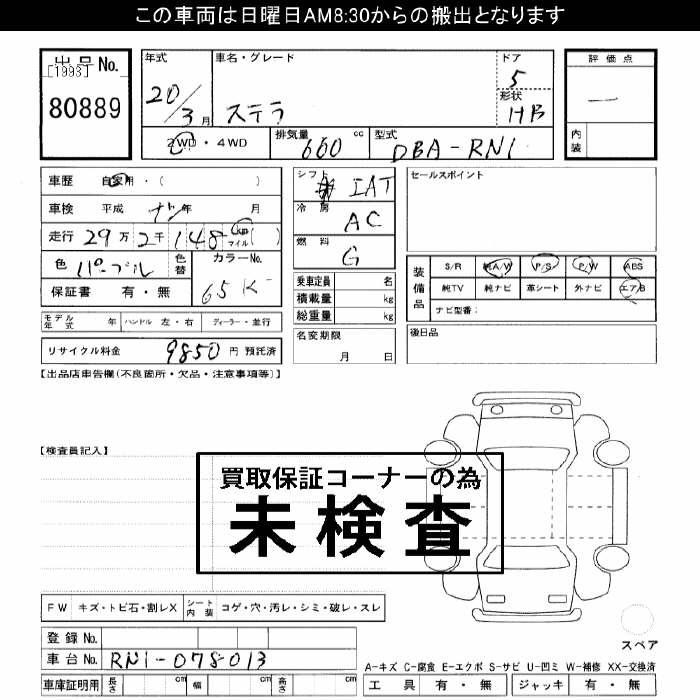 この車両は日曜日AM8:30からの搬出となります
出品No. [1993] 80889
年式 20/3月
車名・グレード ステラ
ドア 5
形状 HB
評価点 —
内装
2WD・4WD 排気量 660 cc 型式 DBA-RN1
車歴 自家用・( )
車検 平成 年 月
走行 29万2千148 km マイル ( )
色 パープル 色替 カラーNo. 65K
保証書 有・無
モデル年式 年 ハンドル 左・右 ディーラー・並行
リサイクル料金 9850 円 預託済
シフト IAT
冷房 AC
燃料 G
乗車定員 名
積載量 kg
総重量 kg
名変期限 月 日
セールスポイント
装備品 S/R 純A/W P/S P/W ABS
純TV 純ナビ 革シート 外ナビ エアB
ナビ型番:
後日品
【出品店車告欄(不良箇所・欠品・注意事項等)】
【検査員記入】
買取保証コーナーの為
未検査
FW キズ・トビ石・割レX シート内装 コゲ・穴・汚レ・シミ・破レ・スレ
登録No.
車台No. RN1-078013
車庫証明用 長さ cm 幅 cm 高さ cm
スペア
A-キズ C-腐食 E-エクボ S-サビ U-凹ミ W-補修 XX-交換済
工具 有・無 ジャッキ 有・無